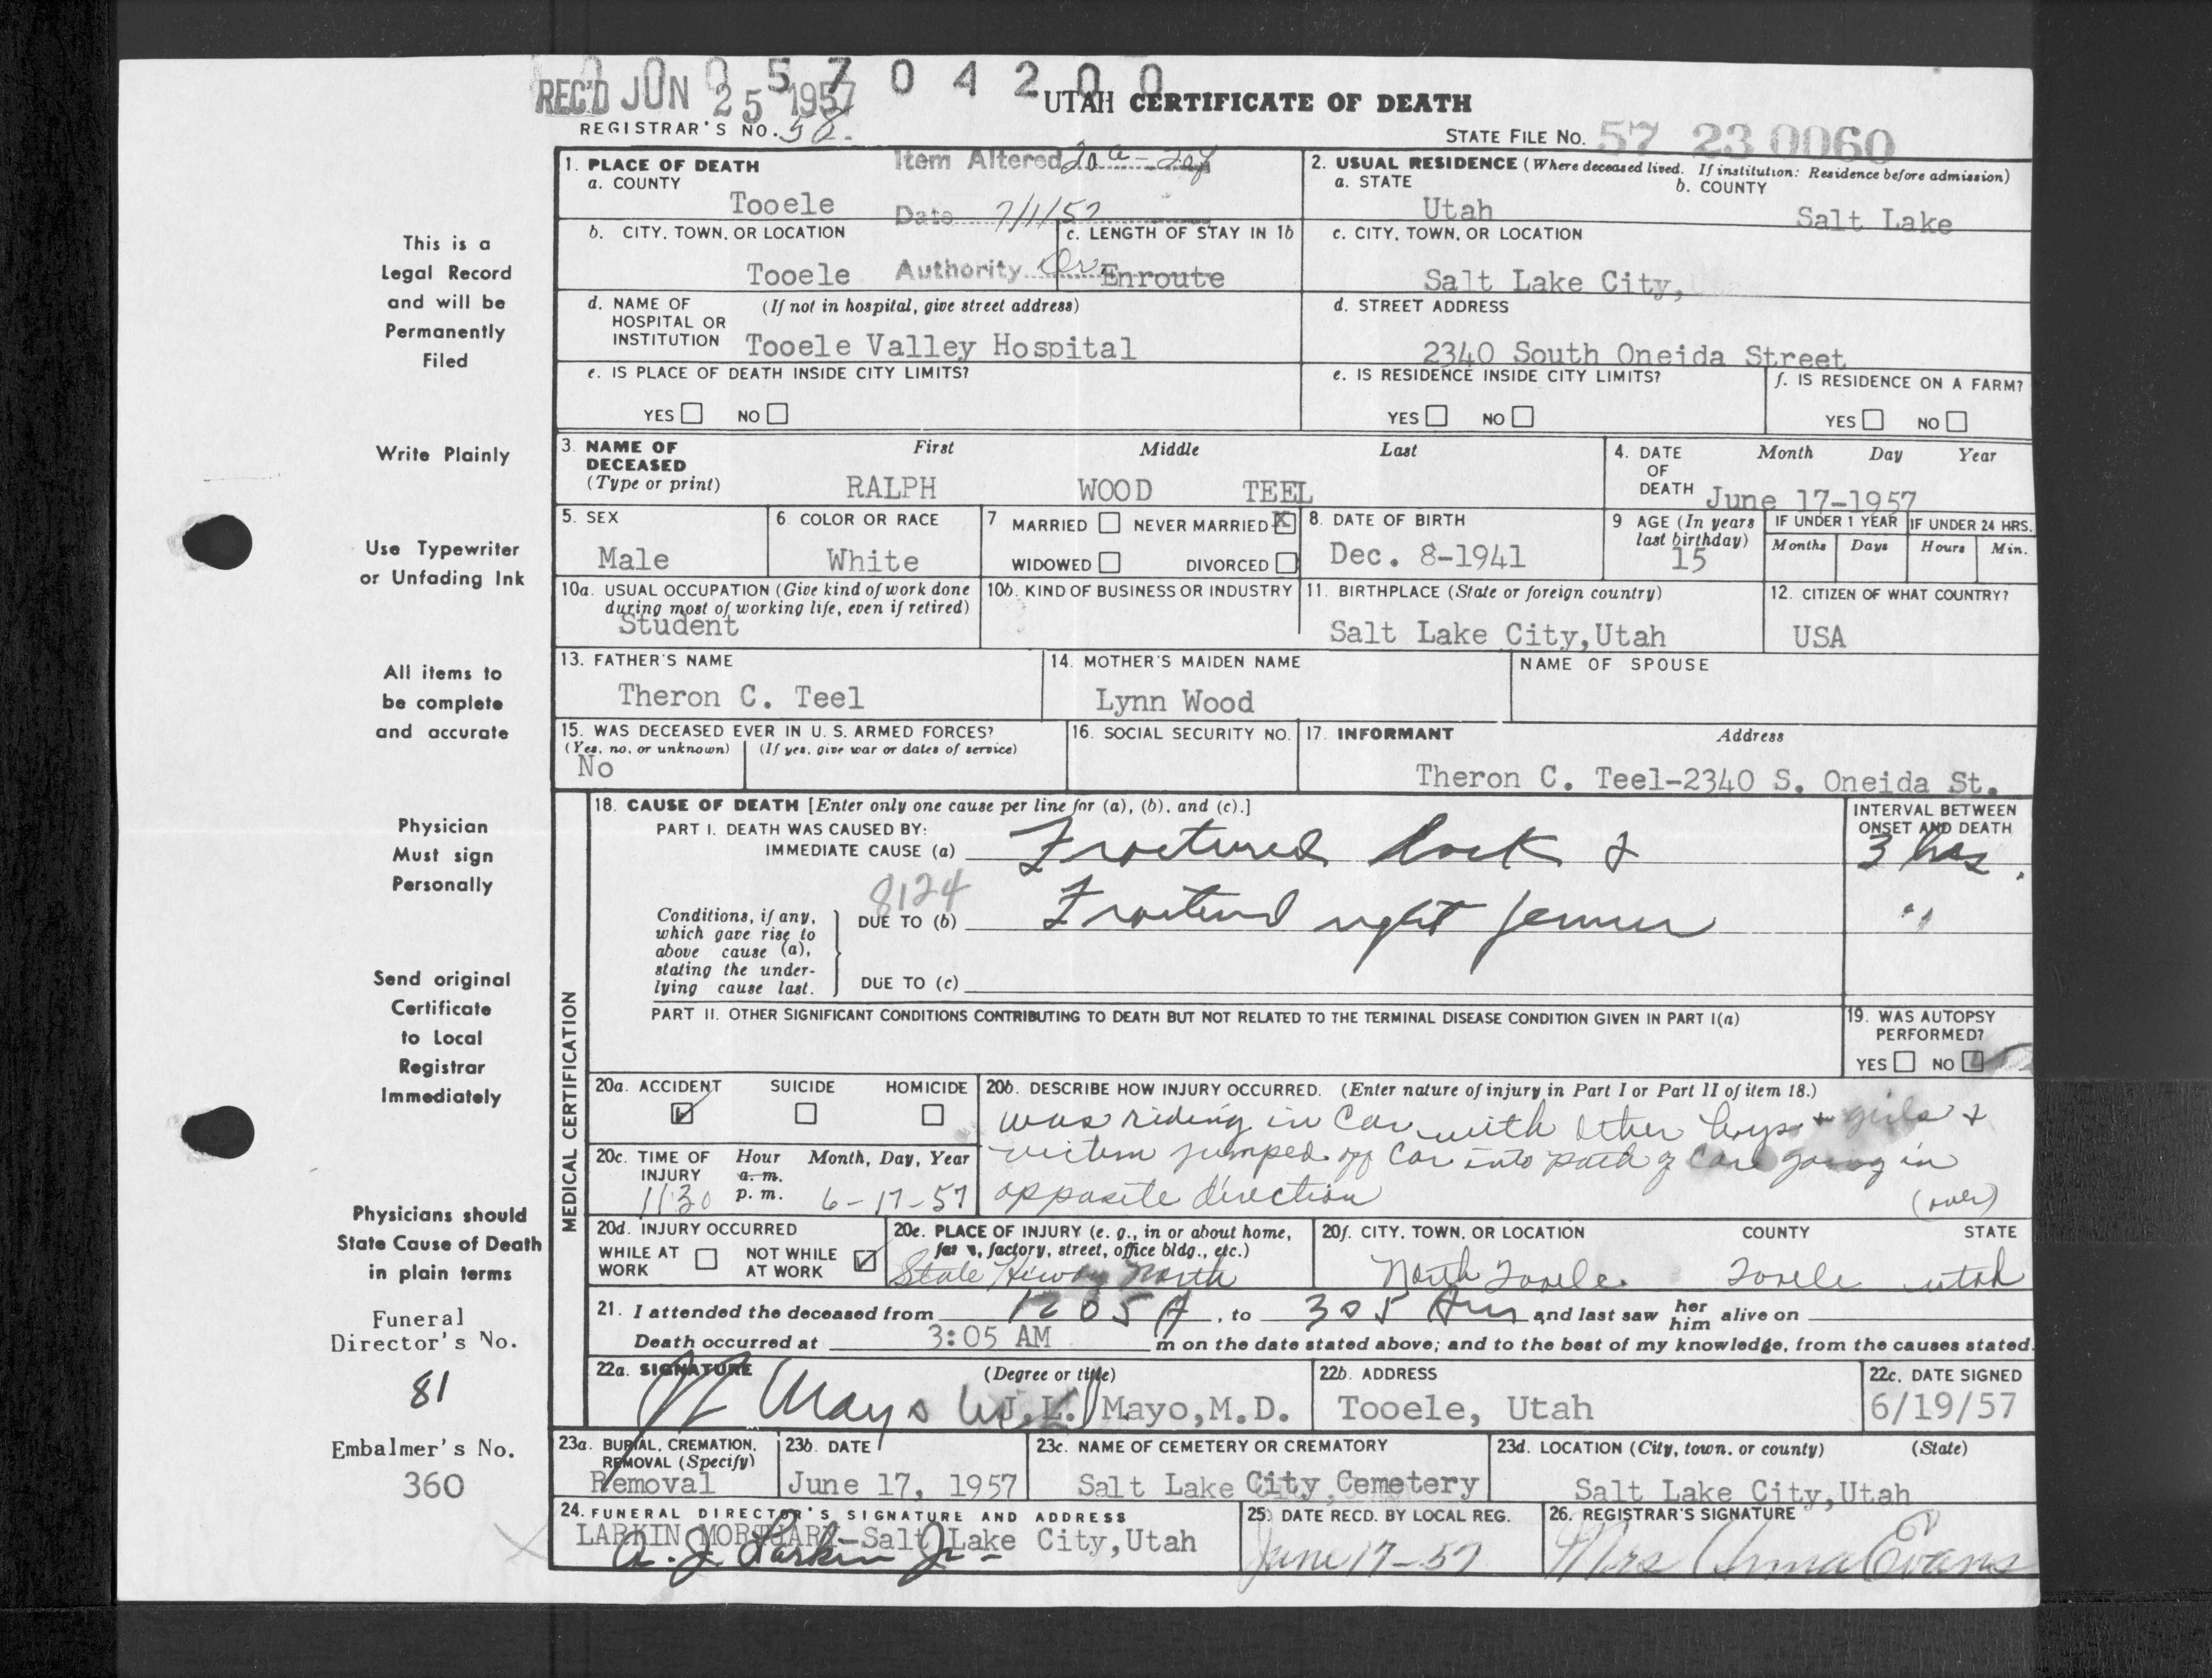 0 0 0 5 7 0 4 2 0 0
REC'D JUN 25 1957
UTAH CERTIFICATE OF DEATH
REGISTRAR'S NO. 58.
STATE FILE NO. 57 23 0060
This is a
Legal Record
and will be
Permanently
Filed
Write Plainly
Use Typewriter
or Unfading Ink
All items to
be complete
and accurate
Physician
Must sign
Personally
Send original
Certificate
to Local
Registrar
Immediately
Physicians should
State Cause of Death
in plain terms
Funeral
Director's No.
81
Embalmer's No.
360
1. PLACE OF DEATH
a. COUNTY
Tooele
Item Altered 20a-20f
Date 7/1/57
Authority Dr.
2. USUAL RESIDENCE (Where deceased lived. If institution: Residence before admission)
a. STATE
Utah
b. COUNTY
Salt Lake
b. CITY, TOWN, OR LOCATION
Tooele
c. LENGTH OF STAY IN 1b
Enroute
c. CITY, TOWN, OR LOCATION
Salt Lake City,
d. NAME OF HOSPITAL OR INSTITUTION
(If not in hospital, give street address)
Tooele Valley Hospital
d. STREET ADDRESS
2340 South Oneida Street
e. IS PLACE OF DEATH INSIDE CITY LIMITS?
YES NO
e. IS RESIDENCE INSIDE CITY LIMITS?
YES NO
f. IS RESIDENCE ON A FARM?
YES NO
3. NAME OF DECEASED (Type or print)
First Middle Last
RALPH WOOD TEEL
4. DATE OF DEATH
Month Day Year
June 17-1957
5. SEX
Male
6. COLOR OR RACE
White
7 MARRIED NEVER MARRIED X
WIDOWED DIVORCED
8. DATE OF BIRTH
Dec. 8-1941
9 AGE (In years last birthday)
15
IF UNDER 1 YEAR
Months Days
IF UNDER 24 HRS.
Hours Min.
10a. USUAL OCCUPATION (Give kind of work done during most of working life, even if retired)
Student
10b. KIND OF BUSINESS OR INDUSTRY
11. BIRTHPLACE (State or foreign country)
Salt Lake City,Utah
12. CITIZEN OF WHAT COUNTRY?
USA
13. FATHER'S NAME
Theron C. Teel
14. MOTHER'S MAIDEN NAME
Lynn Wood
NAME OF SPOUSE
15. WAS DECEASED EVER IN U. S. ARMED FORCES?
(Yes, no, or unknown) (If yes, give war or dates of service)
No
16. SOCIAL SECURITY NO.
17. INFORMANT Address
Theron C. Teel-2340 S. Oneida St.
MEDICAL CERTIFICATION
18. CAUSE OF DEATH [Enter only one cause per line for (a), (b), and (c).]
PART I. DEATH WAS CAUSED BY:
IMMEDIATE CAUSE (a) Fractured back &
INTERVAL BETWEEN ONSET AND DEATH
3 hrs.
8124
Conditions, if any, which gave rise to above cause (a), stating the underlying cause last.
DUE TO (b) Fractured right femur
"
DUE TO (c)
PART II. OTHER SIGNIFICANT CONDITIONS CONTRIBUTING TO DEATH BUT NOT RELATED TO THE TERMINAL DISEASE CONDITION GIVEN IN PART I(a)
19. WAS AUTOPSY PERFORMED?
YES NO
20a. ACCIDENT SUICIDE HOMICIDE
20b. DESCRIBE HOW INJURY OCCURRED. (Enter nature of injury in Part I or Part II of item 18.)
was riding in Car with other boys + girls &
victim jumped off Car into path of Car going in
opposite direction (over)
20c. TIME OF INJURY
Hour Month, Day, Year
a. m.
p. m.
1130 6-17-57
20d. INJURY OCCURRED
WHILE AT WORK NOT WHILE AT WORK
20e. PLACE OF INJURY (e. g., in or about home, farm, factory, street, office bldg., etc.)
State Hiway North
20f. CITY, TOWN, OR LOCATION COUNTY STATE
North Tooele Tooele Utah
21. I attended the deceased from 1205 A, to 305 Am and last saw her him alive on
Death occurred at 3:05 AM m on the date stated above; and to the best of my knowledge, from the causes stated.
22a. SIGNATURE (Degree or title)
J.L. Mayo,M.D.
22b. ADDRESS
Tooele, Utah
22c. DATE SIGNED
6/19/57
23a. BURIAL, CREMATION, REMOVAL (Specify)
Removal
23b. DATE
June 17, 1957
23c. NAME OF CEMETERY OR CREMATORY
Salt Lake City Cemetery
23d. LOCATION (City, town, or county) (State)
Salt Lake City,Utah
24. FUNERAL DIRECTOR'S SIGNATURE AND ADDRESS
LARKIN MORTUARY-Salt Lake City,Utah
A. J. Larkin Jr.
25. DATE RECD. BY LOCAL REG.
June 17-57
26. REGISTRAR'S SIGNATURE
Mrs Erma Evans